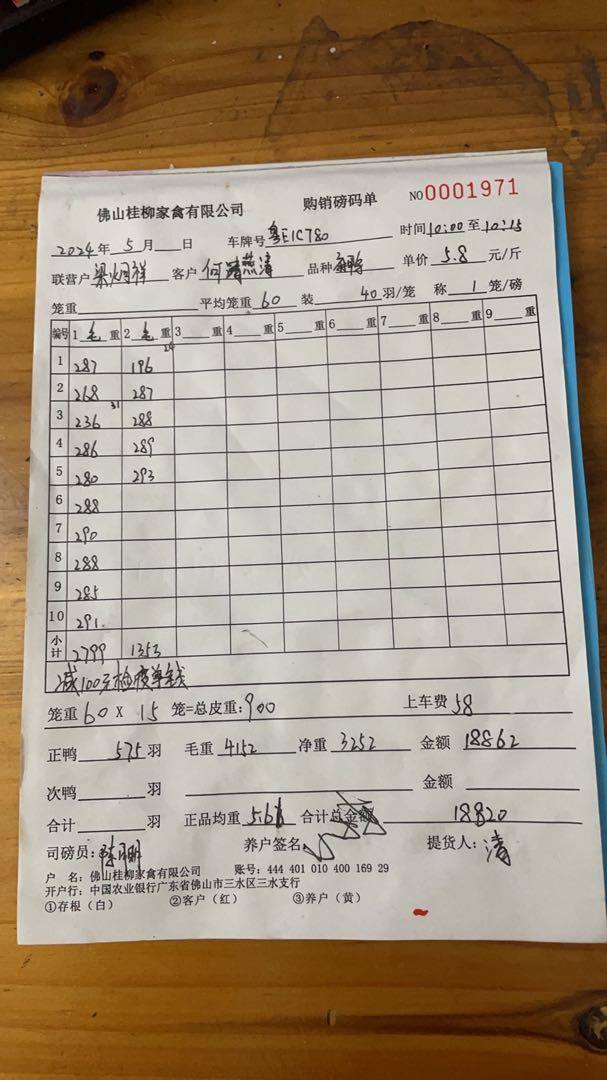 佛山桂柳家禽有限公司 购销磅码单 NO 0001971
2024年 5月 日 车牌号 粤E1C780 时间10:00至10:15
联营户 梁炳祥 客户 何 燕清 品种 单价 5.8 元/斤
笼重 平均笼重 60 装 40 羽/笼 称 1 笼/磅
编号 1 毛 重 2 毛 重 3 重 4 重 5 重 6 重 7 重 8 重 9 重
1 287 196
2 268 287
3 236 31 288
4 286 289
5 280 293
6 288
7 290
8 288
9 285
10 291
小计 2799 1353
减100元检疫单钱
笼重 60 X 15 笼=总皮重: 900 上车费 58
正鸭 575 羽 毛重 4152 净重 3252 金额 18862
次鸭 羽 金额
合计 羽 正品均重 5.66 合计总金额 18820
司磅员: 陈 养户签名 提货人: 清
户 名: 佛山桂柳家禽有限公司 账号: 444 401 010 400 169 29
开户行: 中国农业银行广东省佛山市三水区三水支行
①存根(白) ②客户(红) ③养户(黄)